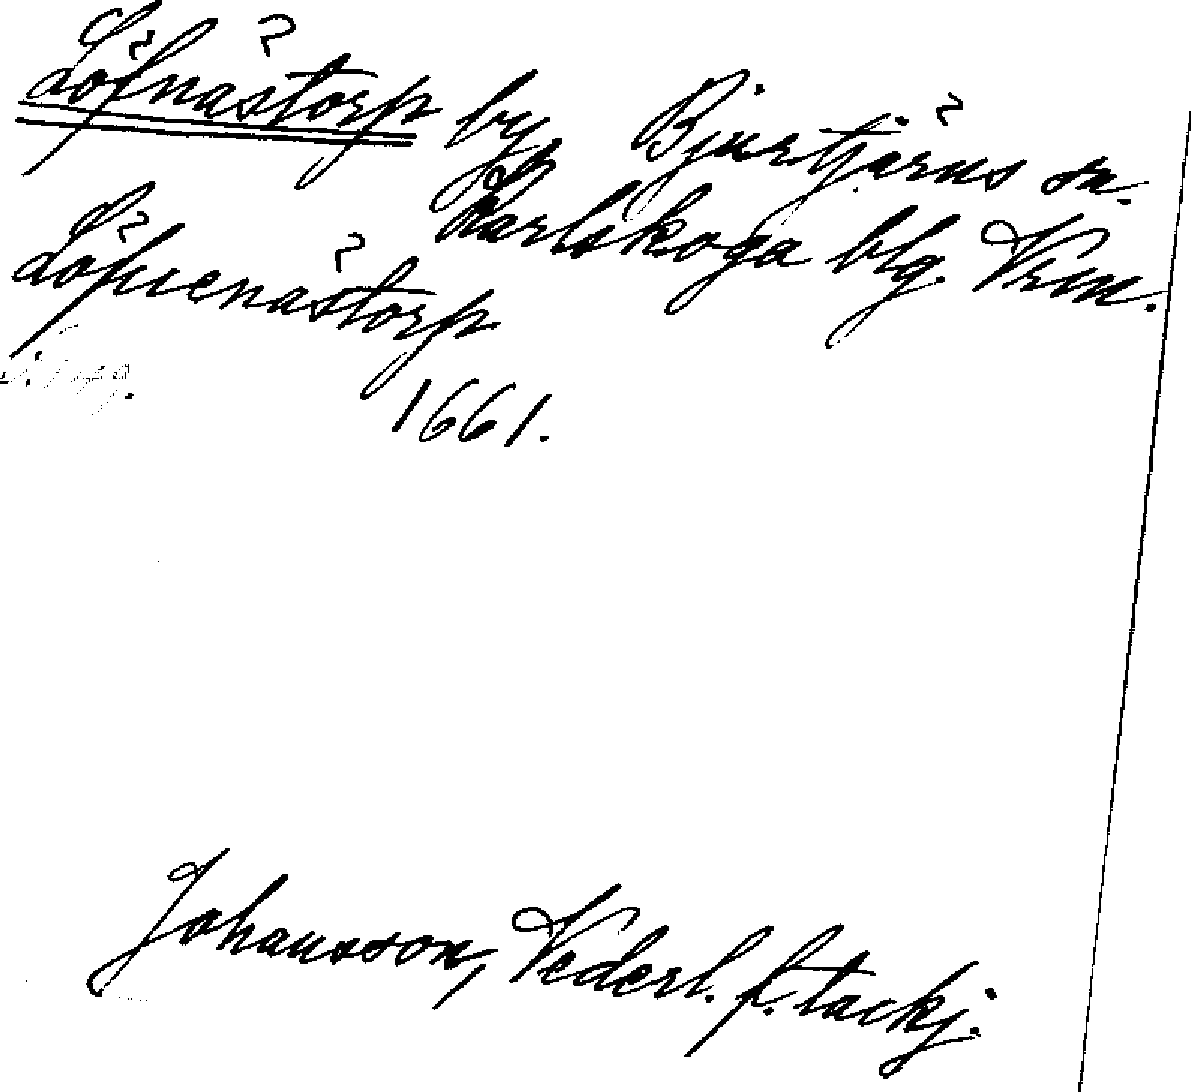 Löfnästorp by Bjurtjärns sn.
Karlskoga blg. Vrm.
Löfuenästorp
1661.
Johansson, Vederl. f. tackj.